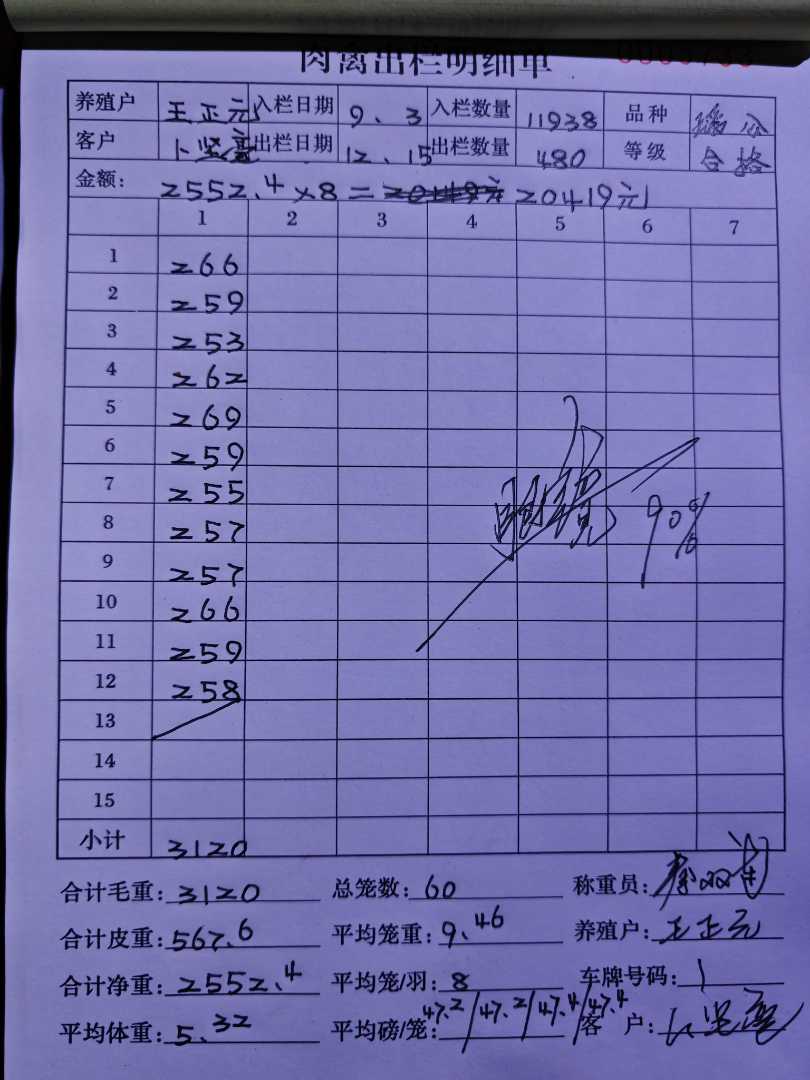 肉禽出栏明细单
养殖户 王正元 入栏日期 9.3 入栏数量 11938 品种
客户 卜坚亮 出栏日期 12.15 出栏数量 480 等级 合格
金额: 2552.4×8= 20419元
1 2 3 4 5 6 7
1 266
2 259
3 253
4 262
5 269
6 259
7 255
8 257
9 257
10 266
11 259
12 258
90%
13
14
15
小计 3120
合计毛重: 3120 总笼数: 60 称重员:
合计皮重: 567.6 平均笼重: 9.46 养殖户: 王正元
合计净重: 2552.4 平均笼/羽: 8 车牌号码:
平均体重: 5.32 平均磅/笼: 47.2/47.2/47.4/47.4 客 户: 卜坚亮